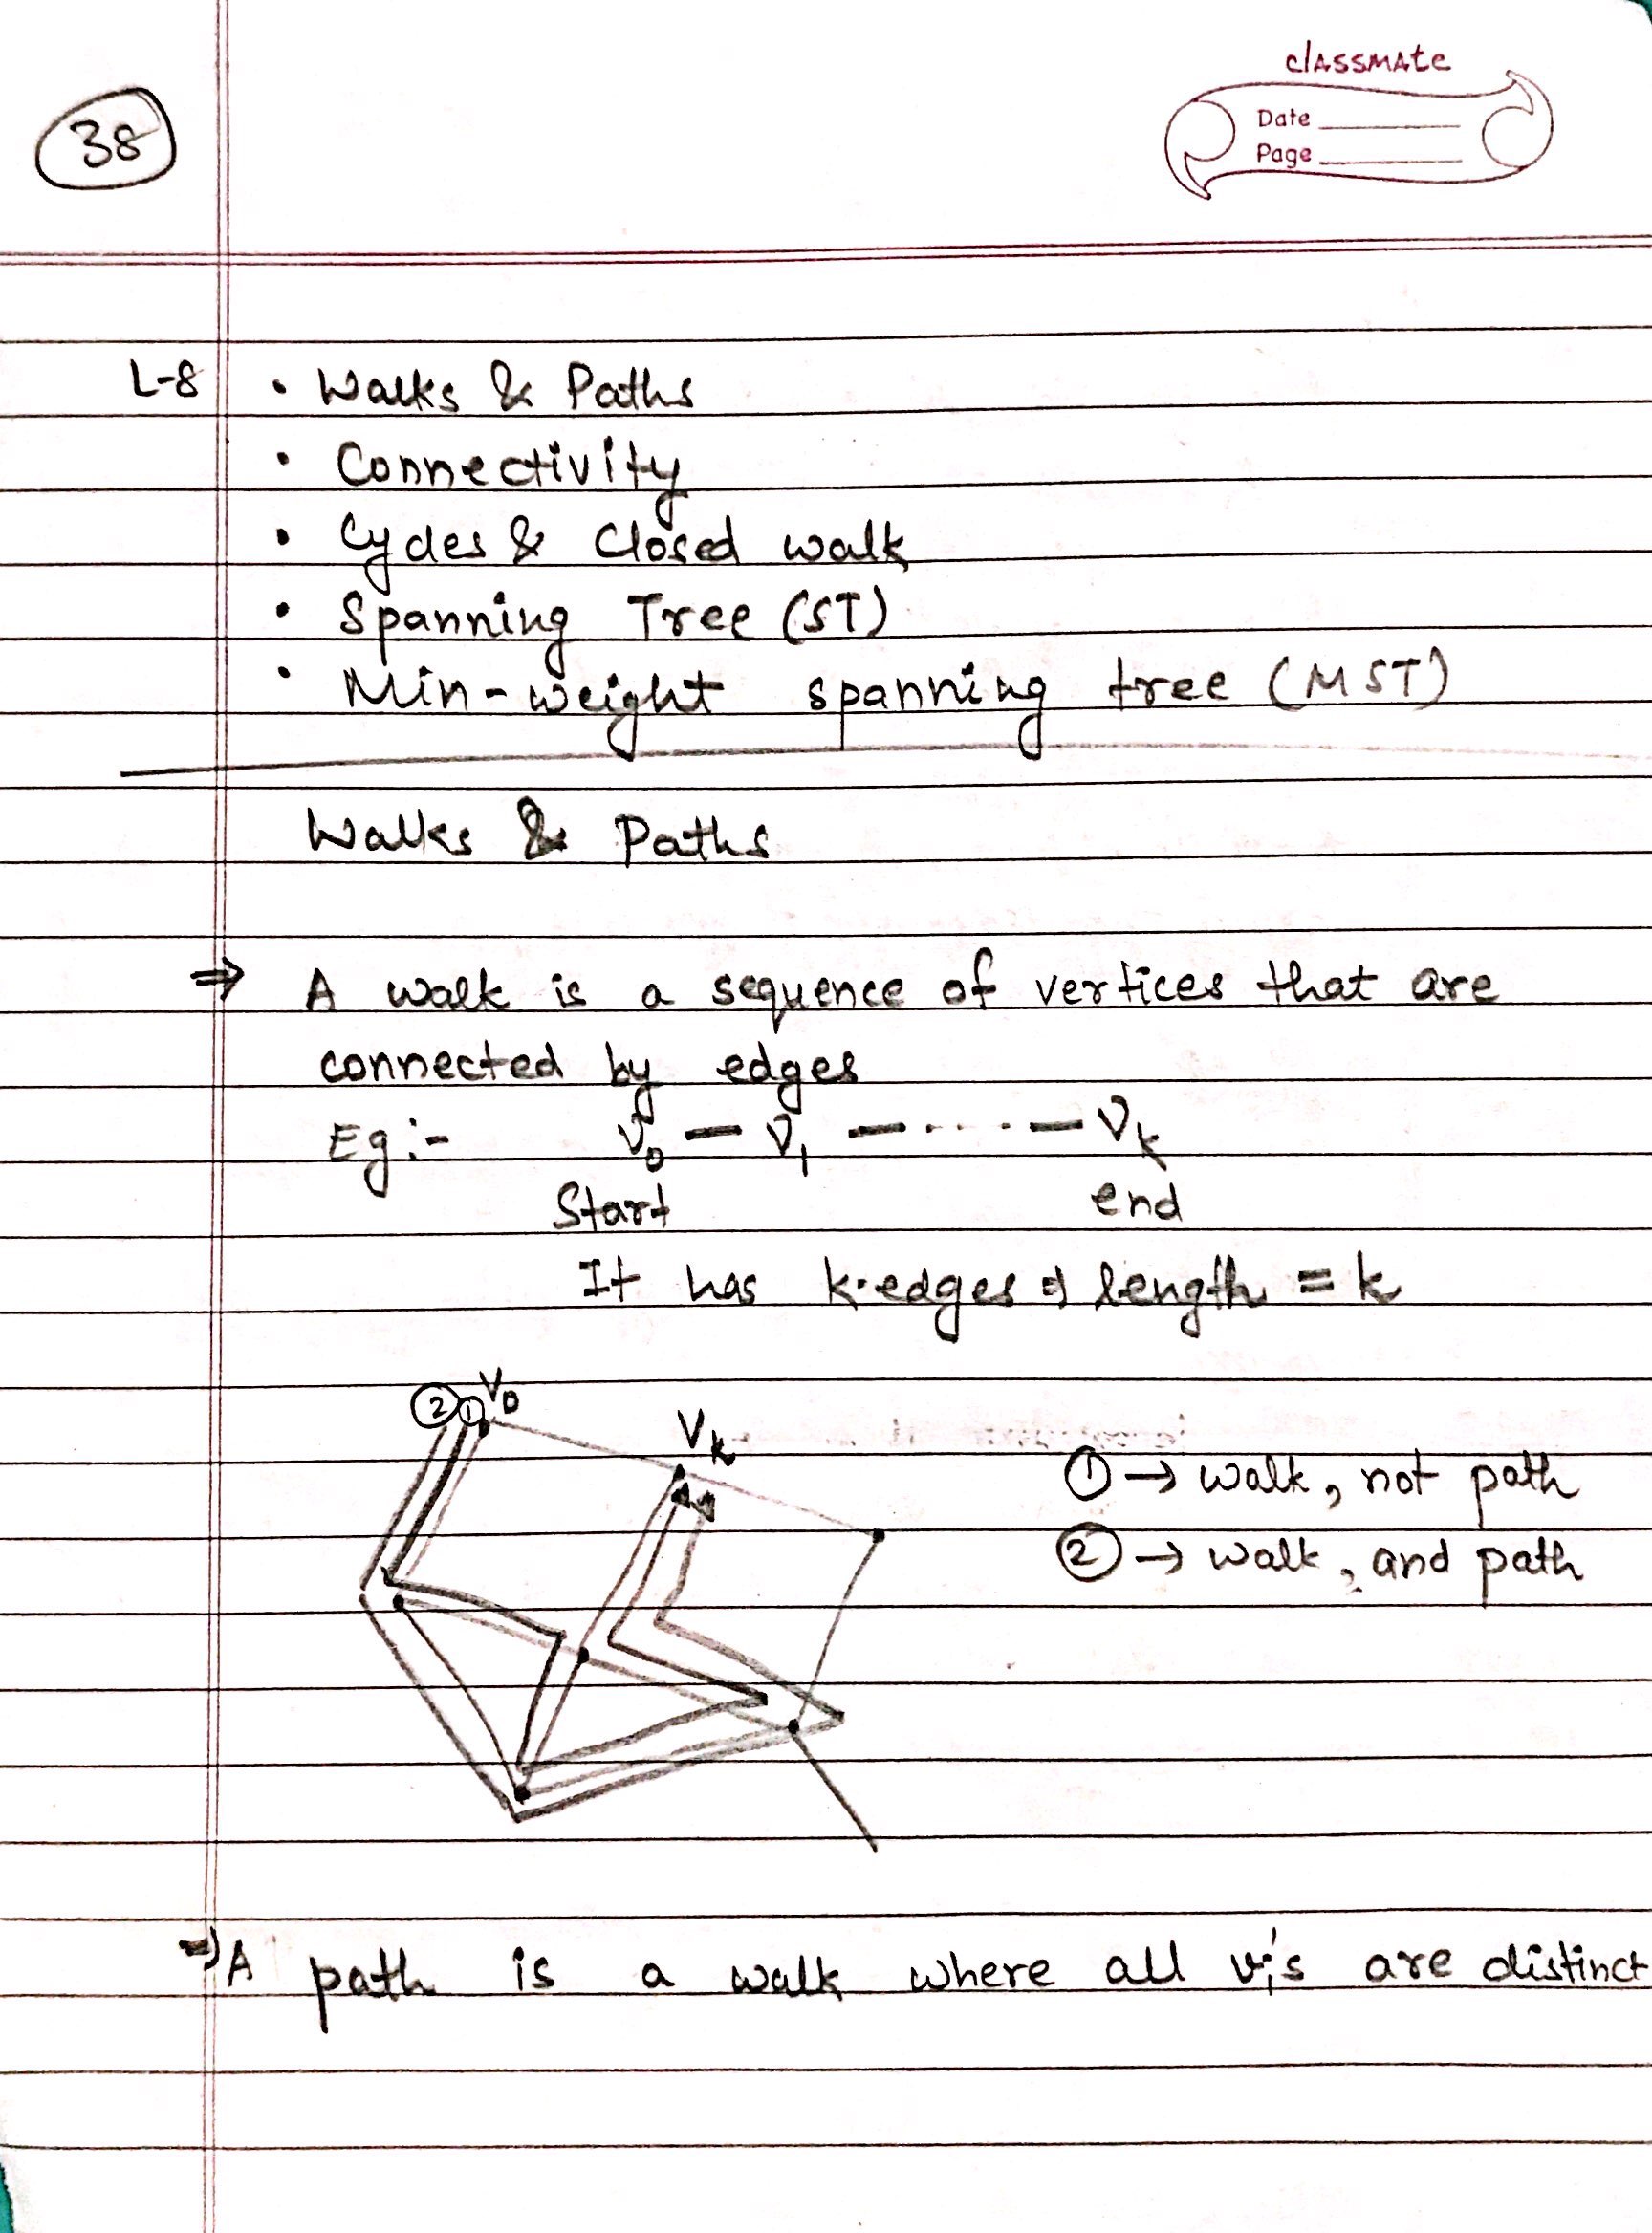 classmate
Date
Page
38
L-8 • Walks & Paths
• Connectivity
• Cycles & Closed walk
• Spanning Tree (ST)
• Min-weight spanning tree (MST)
Walks & Paths
⇒ A walk is a sequence of vertices that are
connected by edges
Eg:- V₀ — V₁ — ···· — Vₖ
Start end
It has k-edges & length = k
② ① V₀
Vₖ
① → walk, not path
② → walk, and path
⇒ A path is a walk where all vᵢ's are distinct